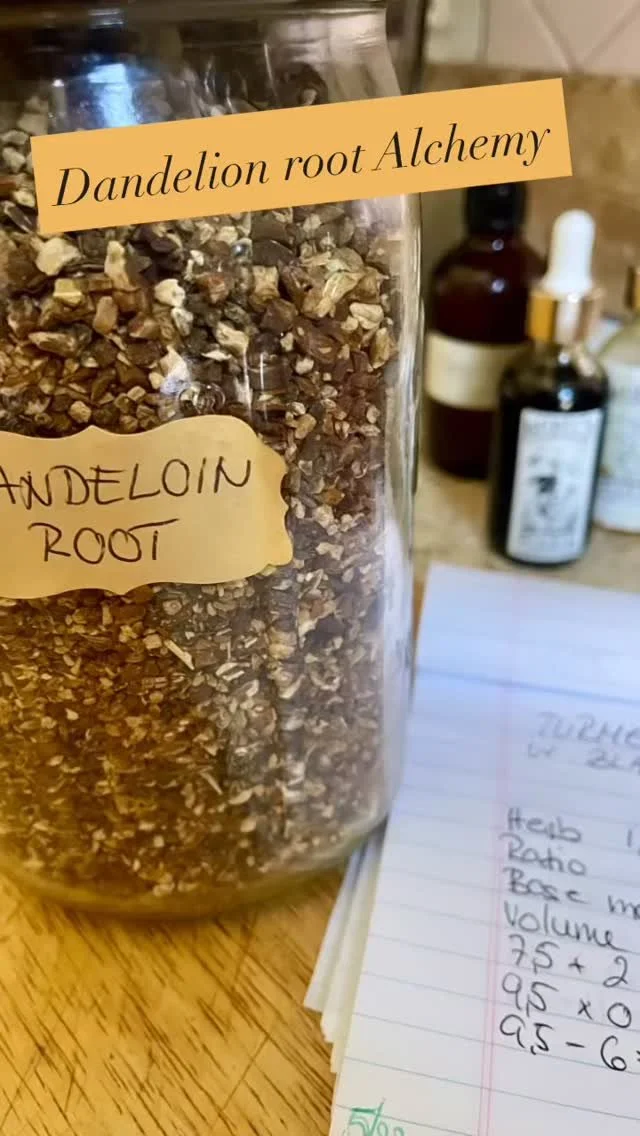 Dandelion root Alchemy
ANDELOIN
ROOT
TURME
W BLA
Herb 1,
Ratio
Base m
Volume
7,5 + 2
9,5 x 0
9,5 - 6